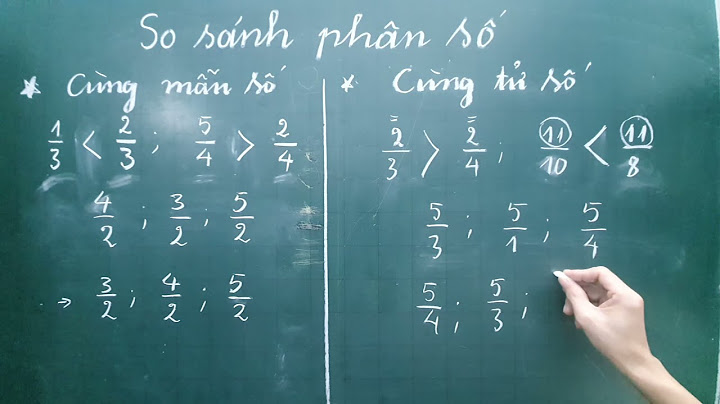 So sánh phân số
* Cùng mẫu số
1/3 < 2/3 ; 5/4 > 2/4
4/2 ; 3/2 ; 5/2
→ 3/2 ; 4/2 ; 5/2
* Cùng tử số
2/3 > 2/4 ; 11/10 < 11/8
5/3 ; 5/1 ; 5/4
5/4 ; 5/3 ;